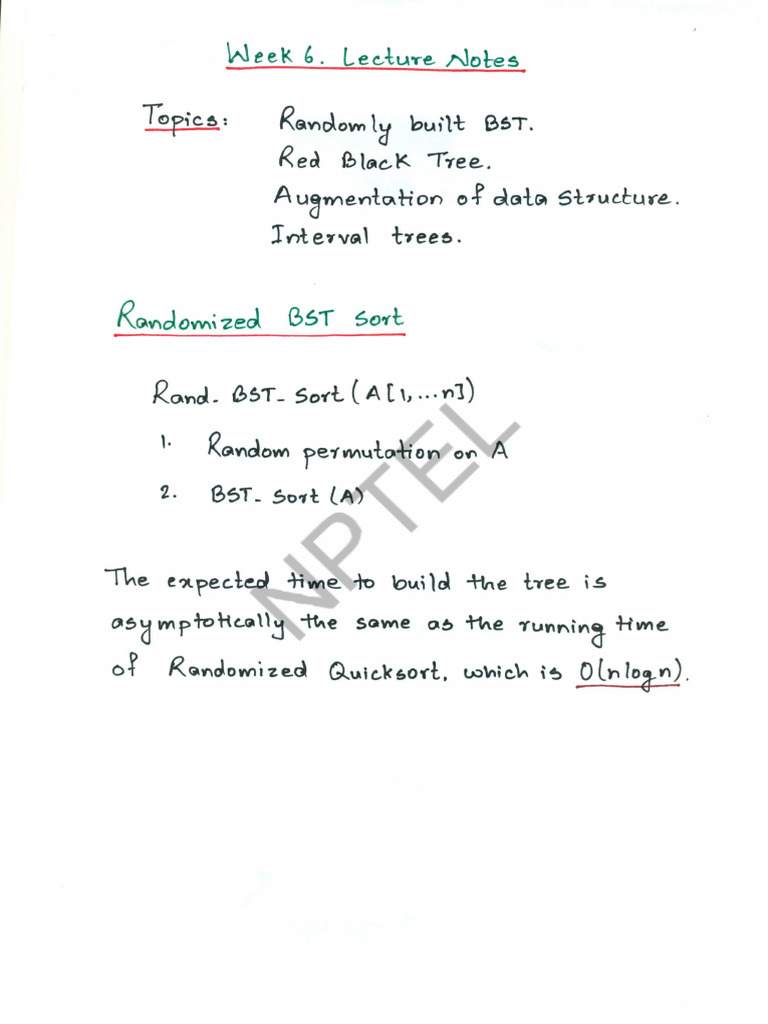 Week 6. Lecture Notes
Topics: Randomly built BST.
Red Black Tree.
Augmentation of data structure.
Interval trees.
Randomized BST sort
Rand_ BST_ sort (A[1,...n])
1. Random permutation on A
2. BST_ sort (A)
NPTEL
The expected time to build the tree is
asymptotically the same as the running time
of Randomized Quicksort, which is O(nlogn).